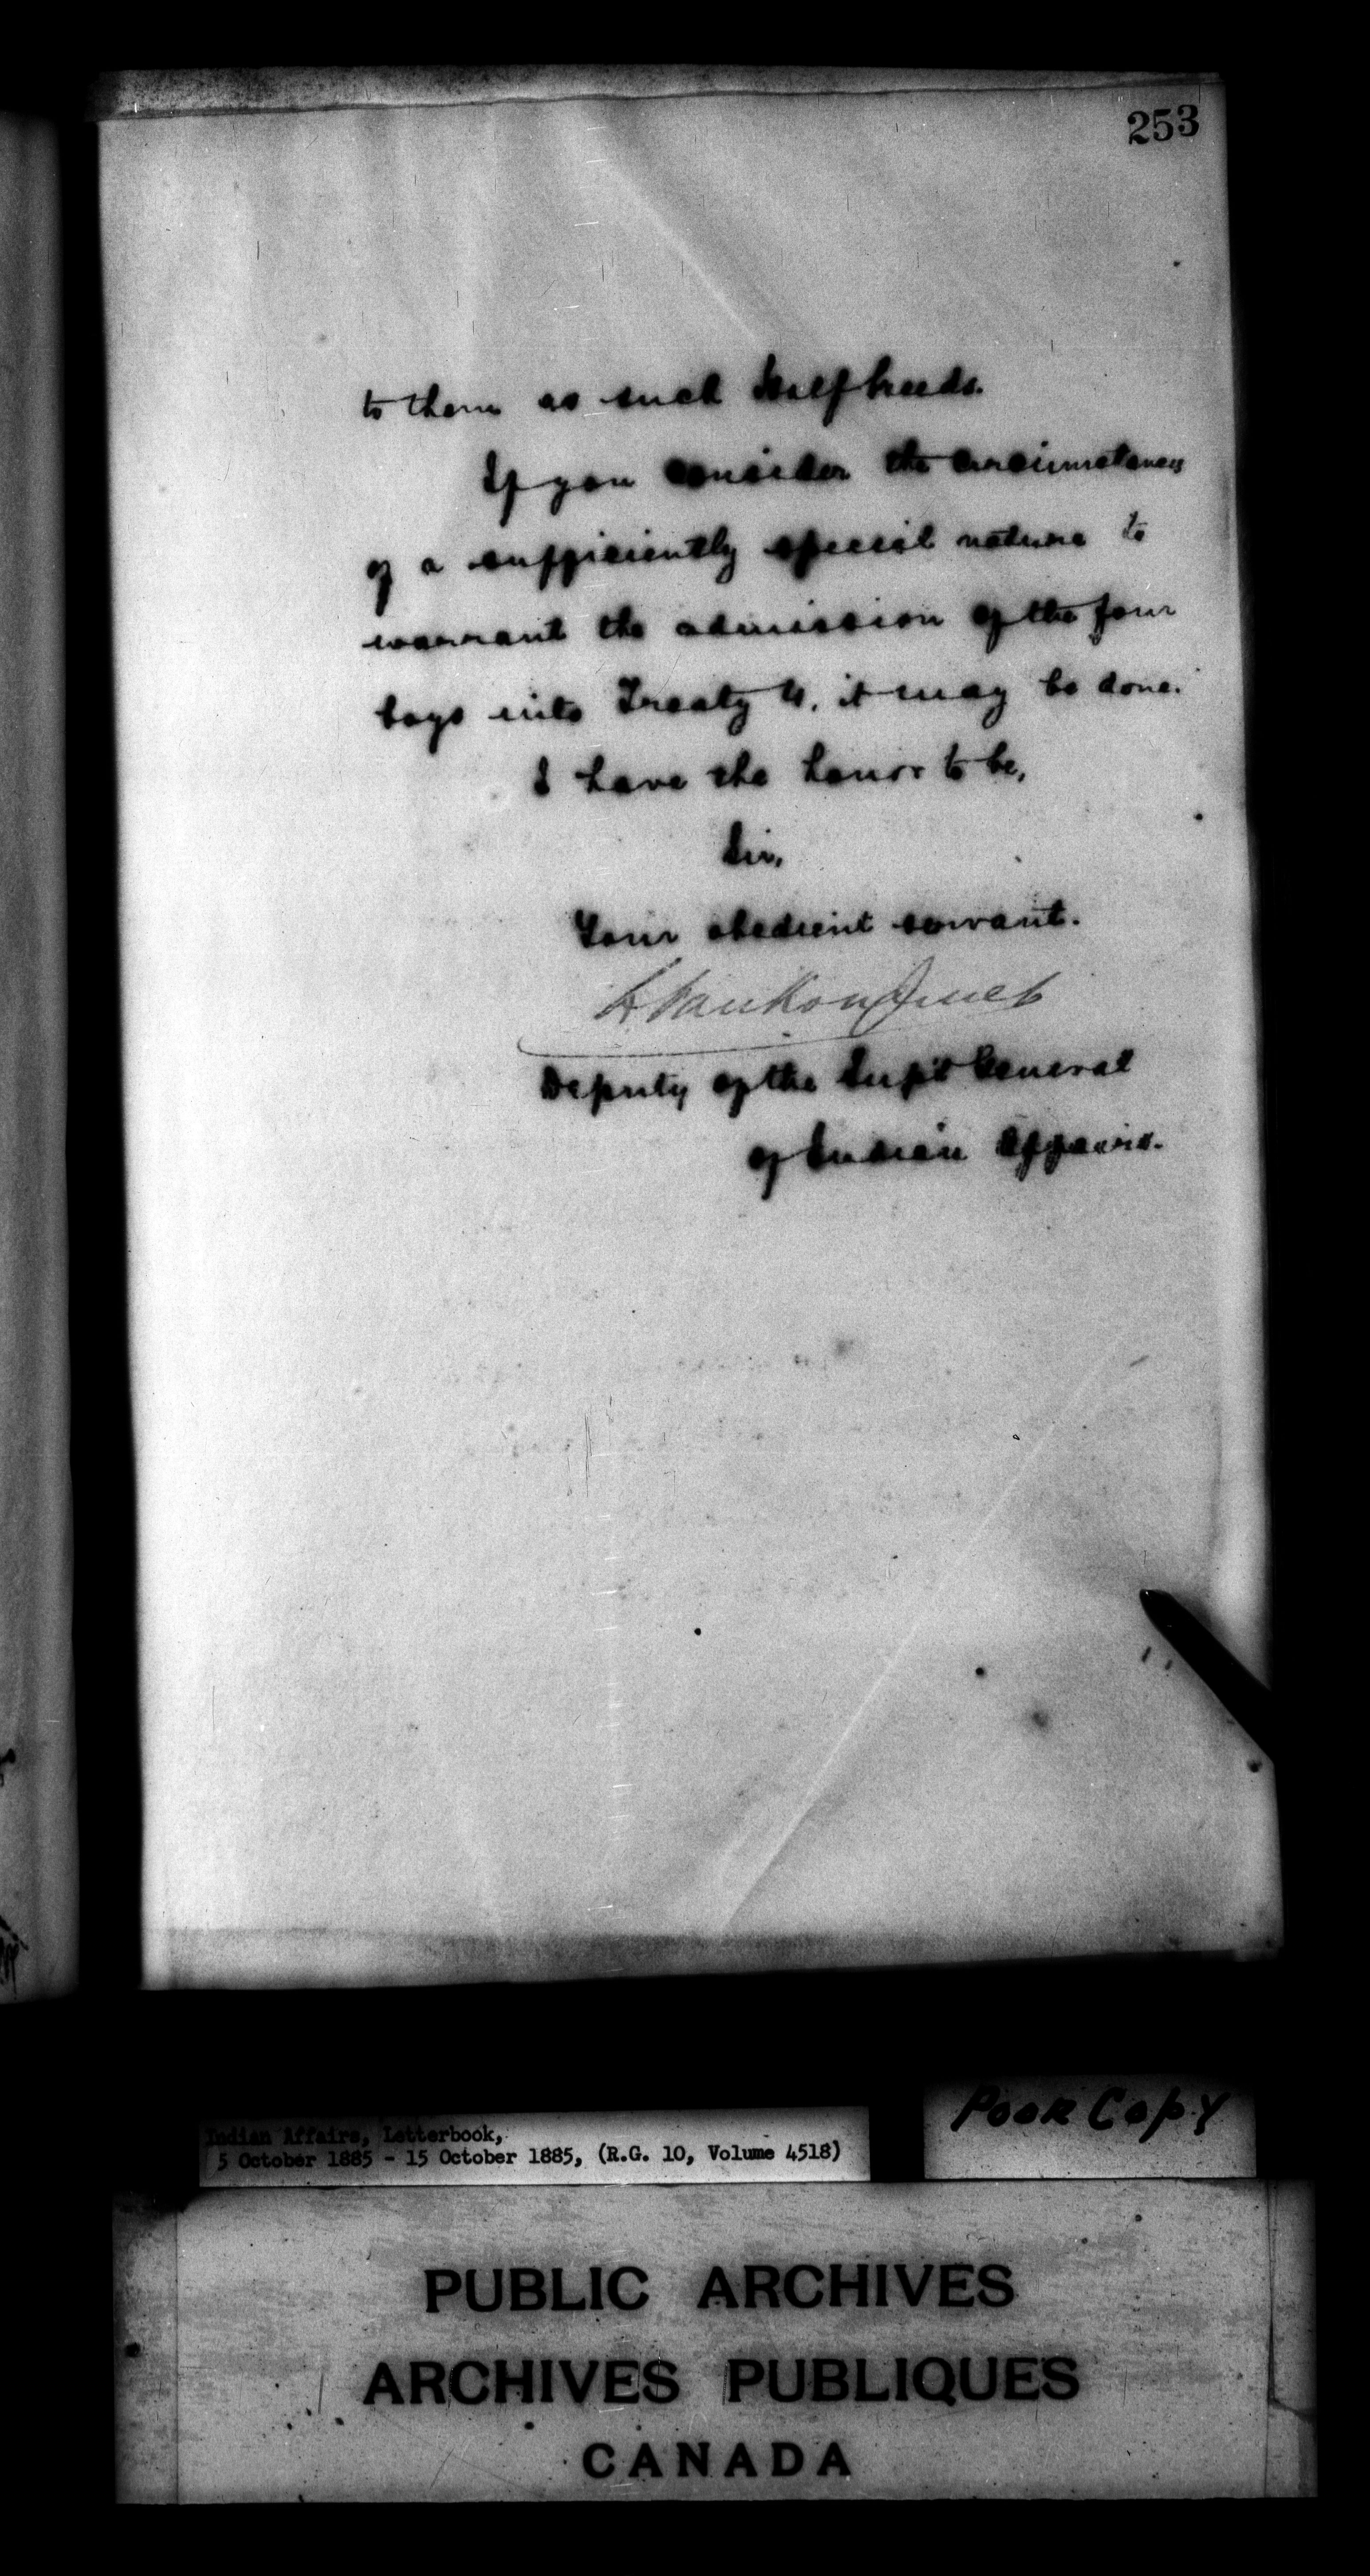 253
to them as such Halfbreeds.
If you consider the circumstances
of a sufficiently special nature to
warrant the admission of the four
boys into Treaty 4, it may be done.
I have the honor to be,
Sir,
Your obedient servant.
L Vankoughnet
Deputy of the Supt General
of Indian Affairs.
Poor Copy
Indian Affairs, Letterbook,
5 October 1885 - 15 October 1885, (R.G. 10, Volume 4518)
PUBLIC ARCHIVES
ARCHIVES PUBLIQUES
CANADA